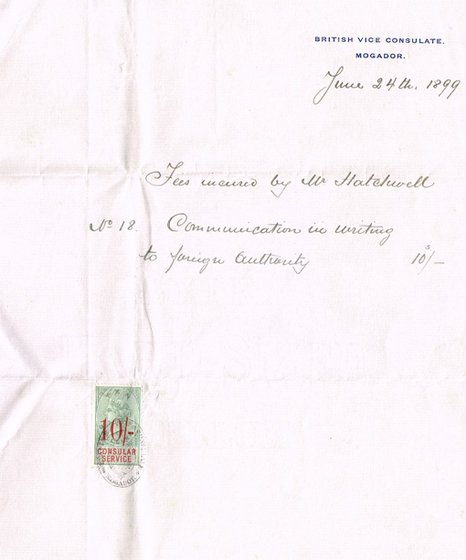 BRITISH VICE CONSULATE.
MOGADOR.
June 24th. 1899
Fees incured by Mr Hatchwell
No 18. Communication in writing
to foreign Authority 10s/-
10/-
CONSULAR
SERVICE
MOGADOR